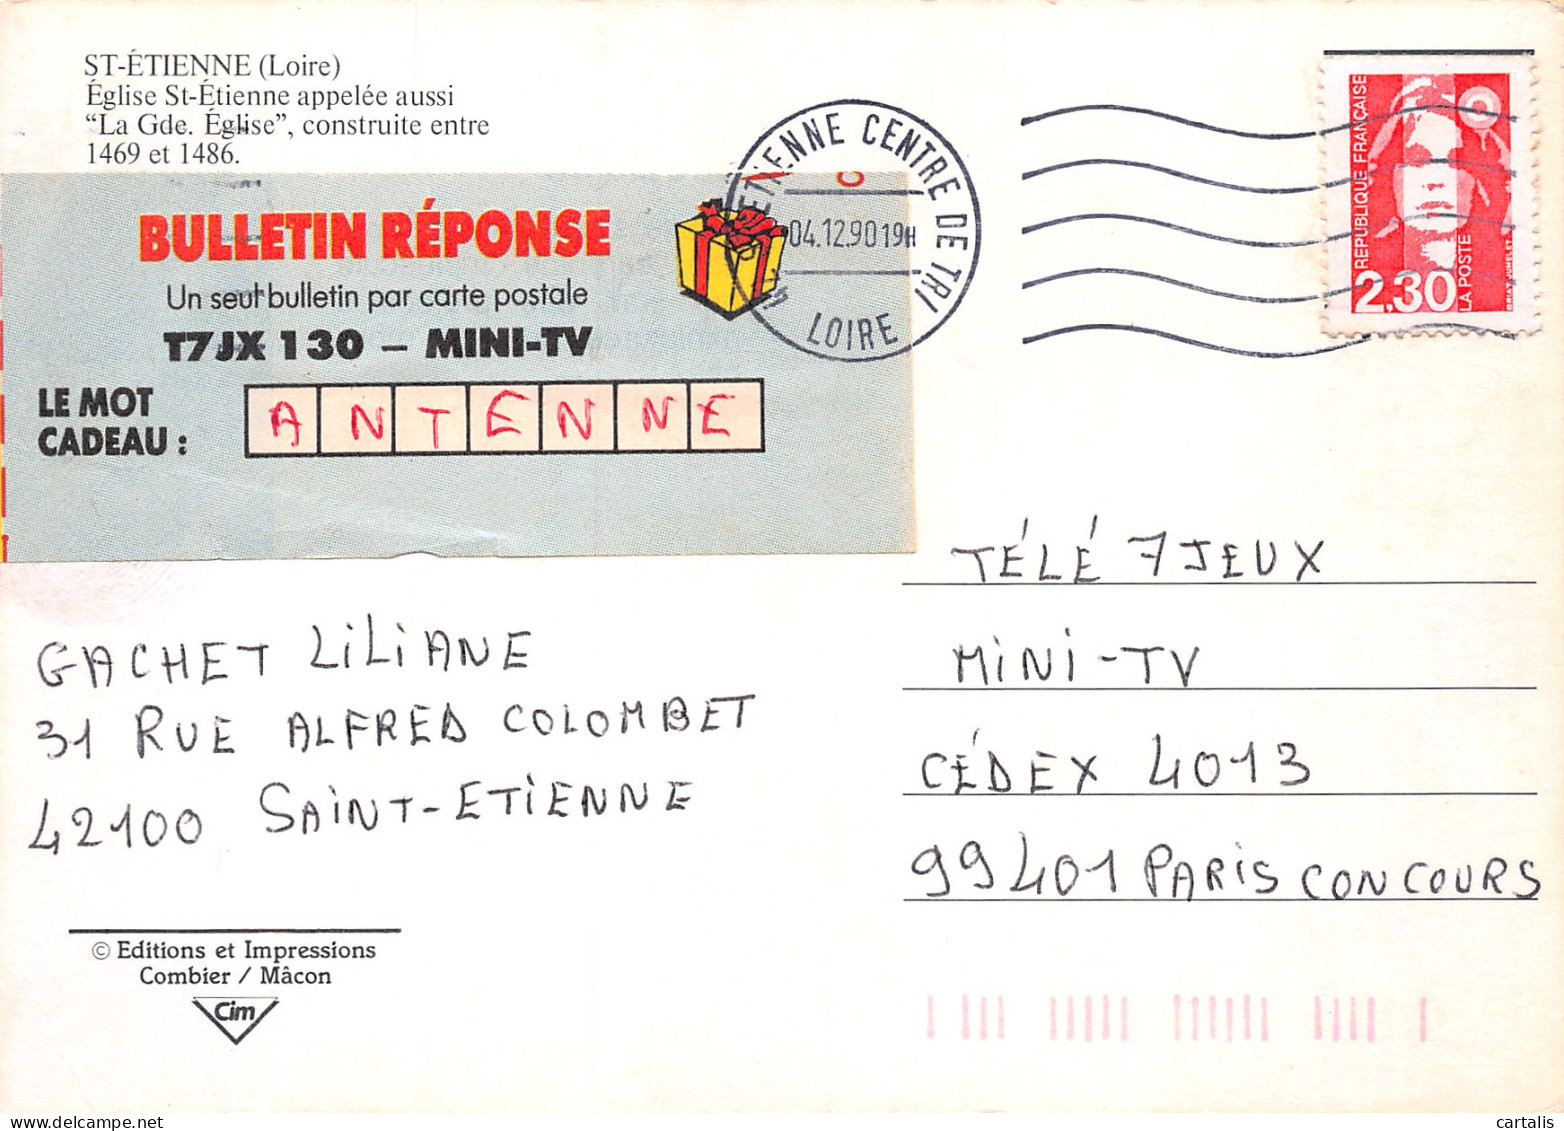 ST-ÉTIENNE (Loire)
Église St-Étienne appelée aussi
“La Gde. Église”, construite entre
1469 et 1486.
BULLETIN RÉPONSE
Un seul bulletin par carte postale
T7JX 130 – MINI-TV
LE MOT
CADEAU :
ANTENNE
ETIENNE CENTRE DE TRI
04.12.90 19H
LOIRE
REPUBLIQUE FRANÇAISE
2,30
LA POSTE
TÉLÉ 7 JEUX
MINI-TV
CÉDEX 4013
99401 PARIS CONCOURS
GACHET LILIANE
31 RUE ALFRED COLOMBET
42100 SAINT-ETIENNE
© Editions et Impressions
Combier / Mâcon
Cim
www.delcampe.net
cartalis